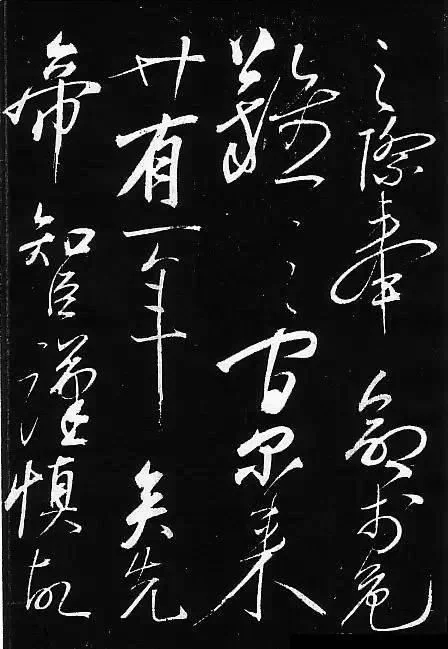 之際奉命於危
難之間尔来
廿有一年矣先
帝知臣謹慎故